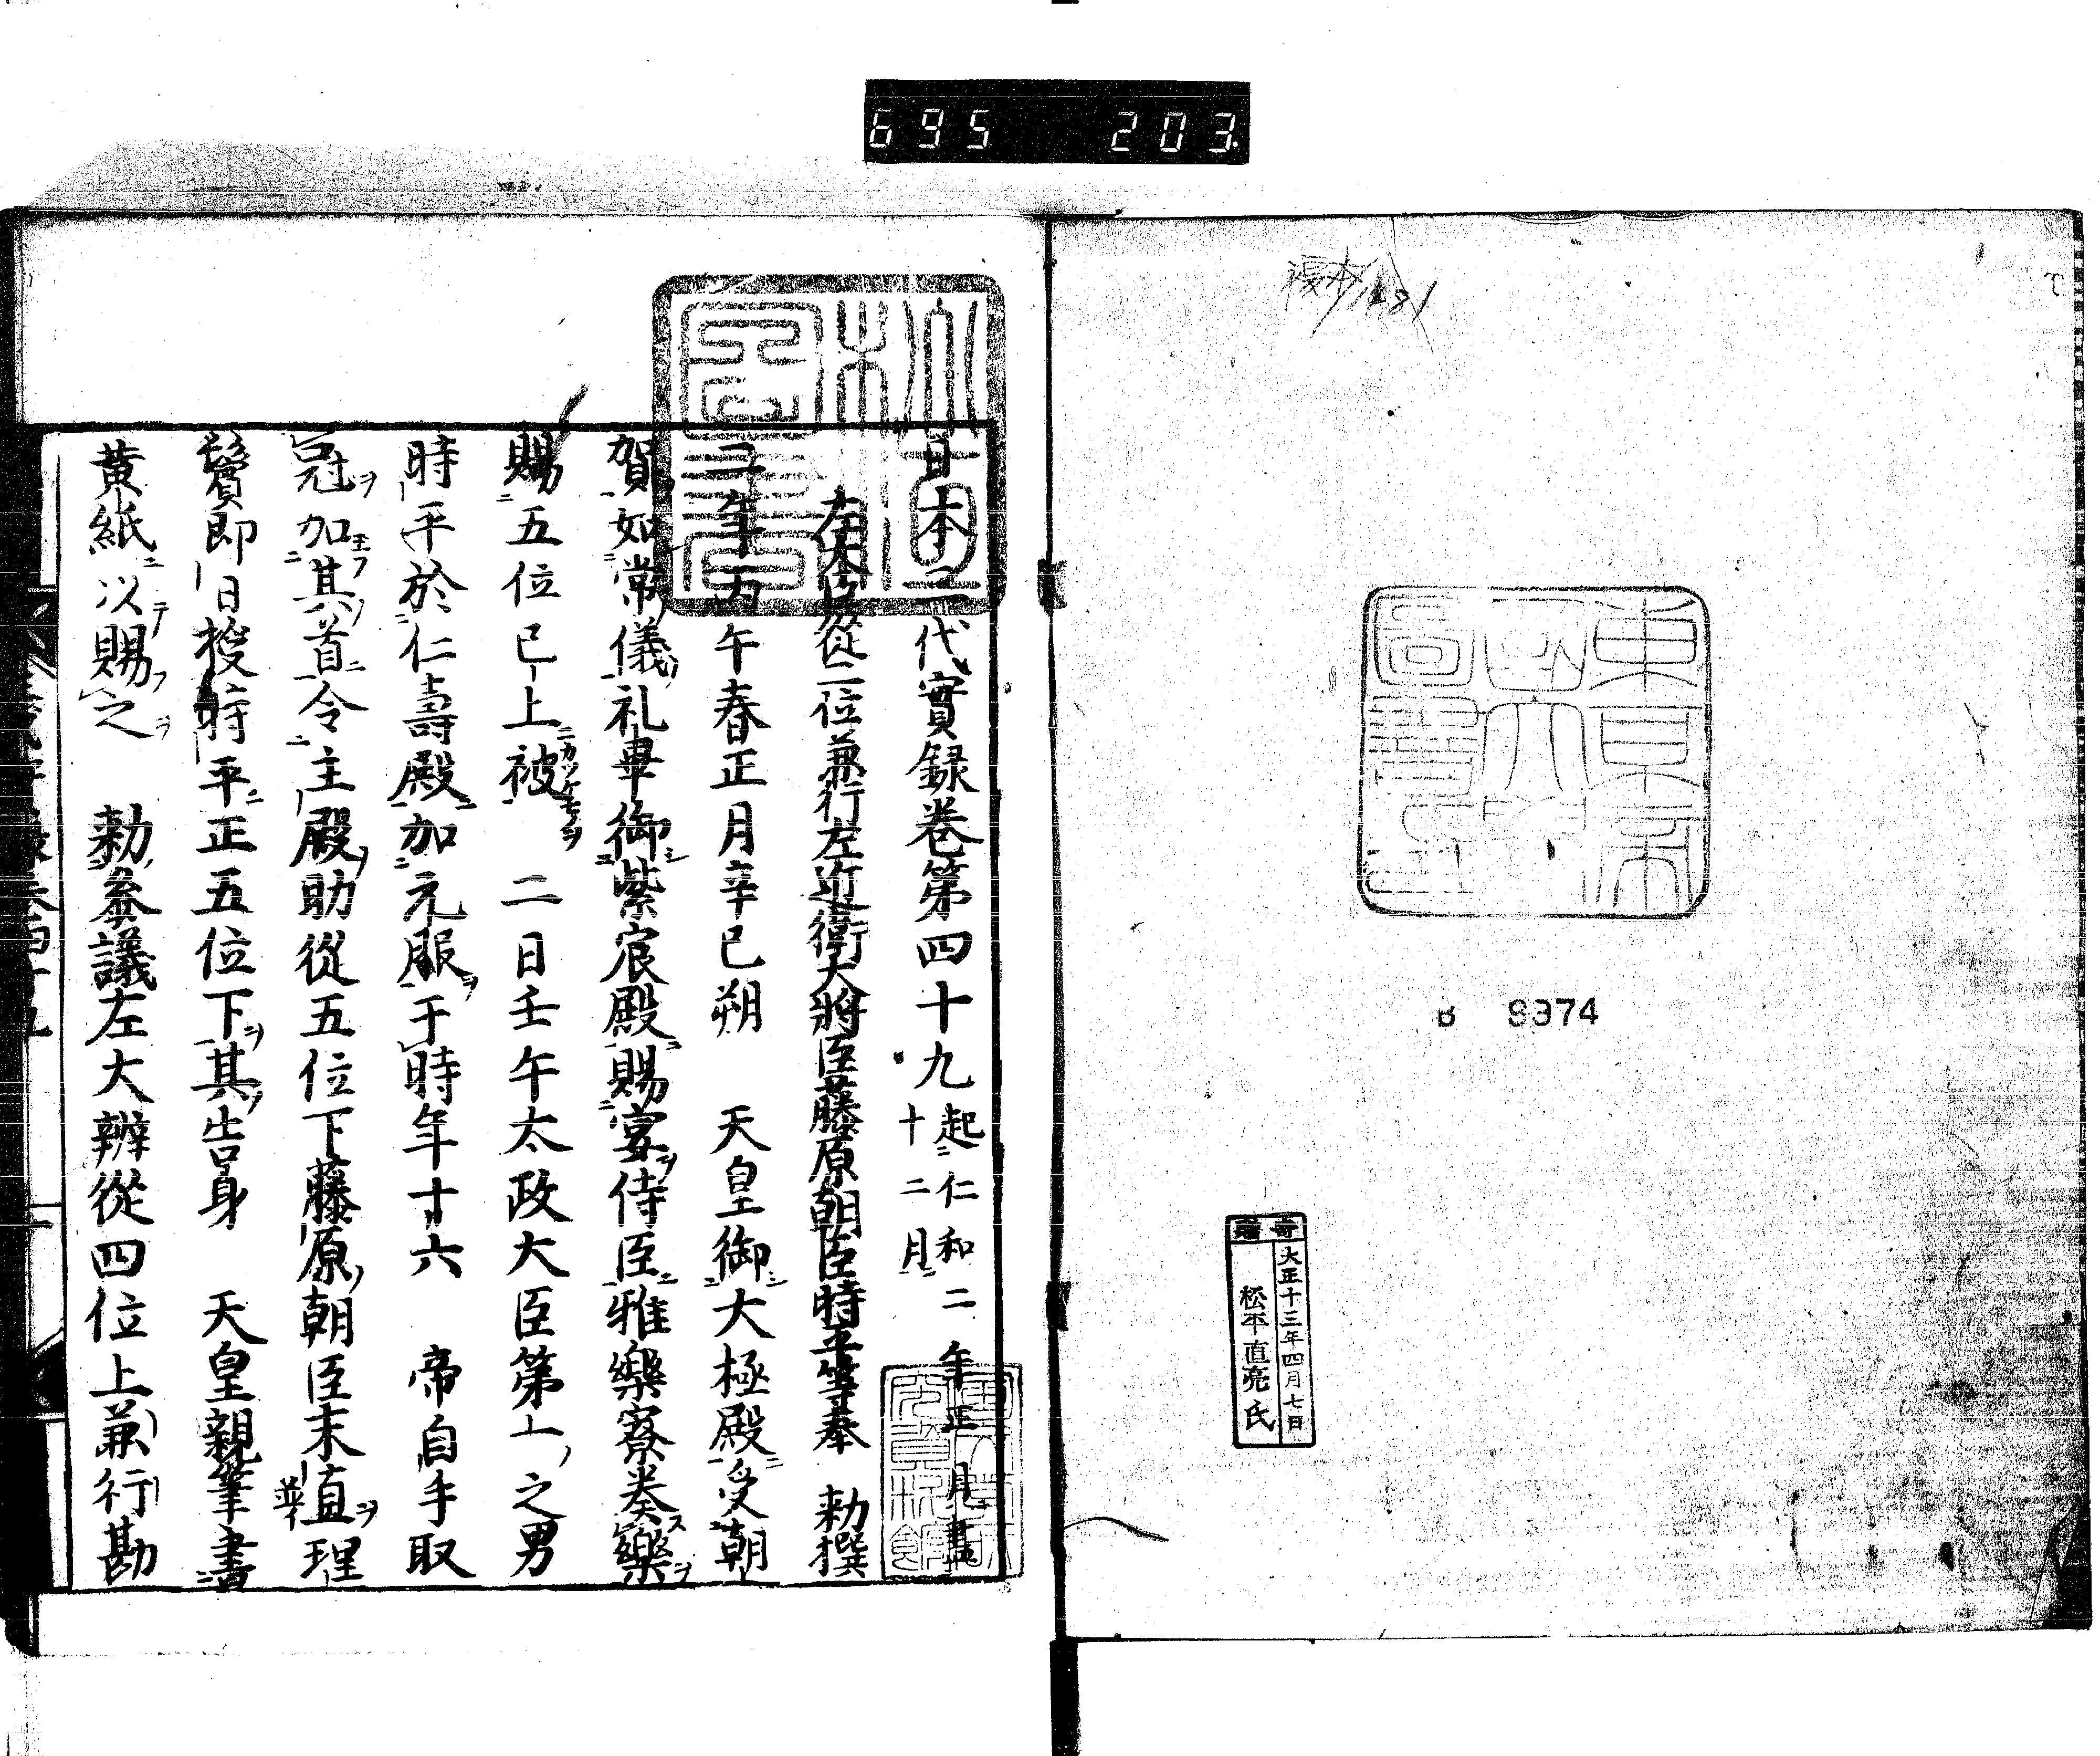 695 203
複本
B 9374
寄贈
大正十三年四月七日
松平直亮氏
日本三代實録巻第四十九 起仁和二年正月盡
十二月
左大臣從二位兼行左近衛大將臣藤原朝臣時平等奉 勅撰
二年丙午春正月辛巳朔 天皇御大極殿受朝
賀如常儀礼畢御紫宸殿賜宴侍臣雅樂寮奏樂
賜五位已上被 二日壬午太政大臣第一之男
時平於仁壽殿加元服于時年十六 帝自手取
冠加其首令主殿助從五位下藤原朝臣末直理
鬢即日授時平正五位下其告身 天皇親筆書
黄紙以賜之 勅参議左大辨從四位上兼行勘